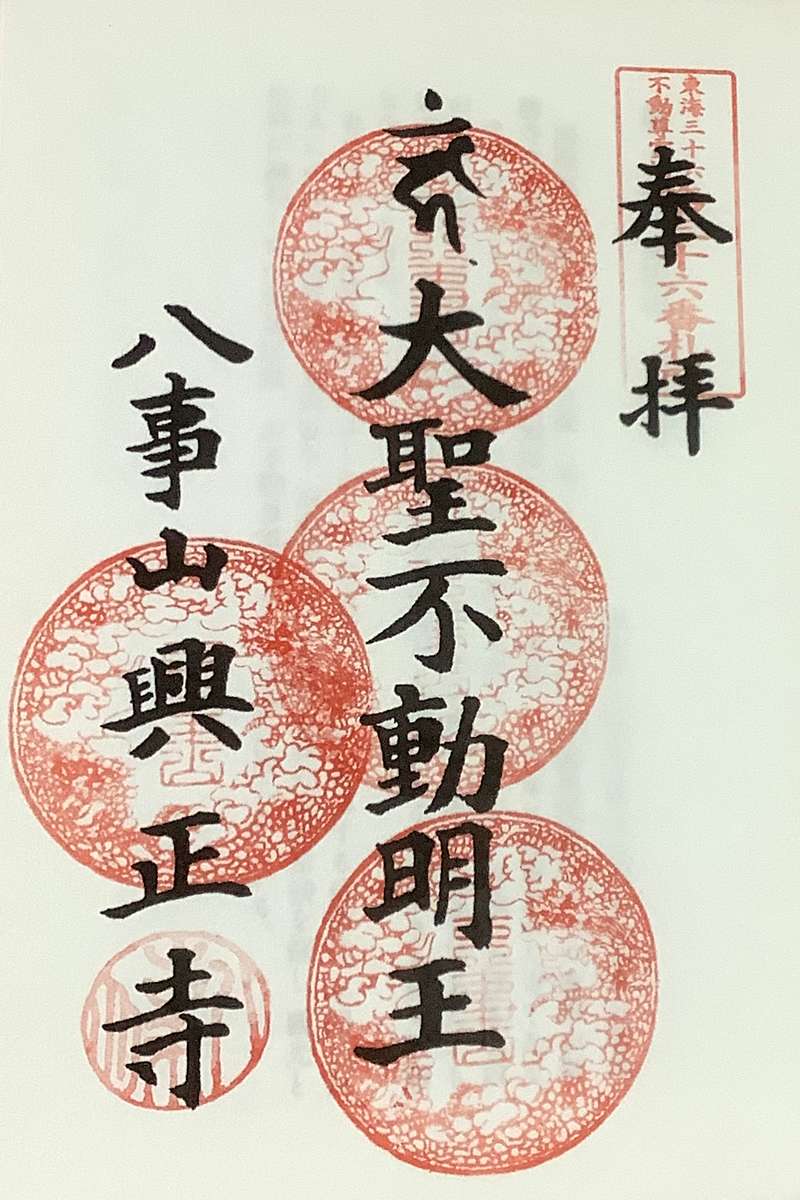 奉拝
大聖不動明王
八事山興正寺
東海三十六
不動尊
十六番札